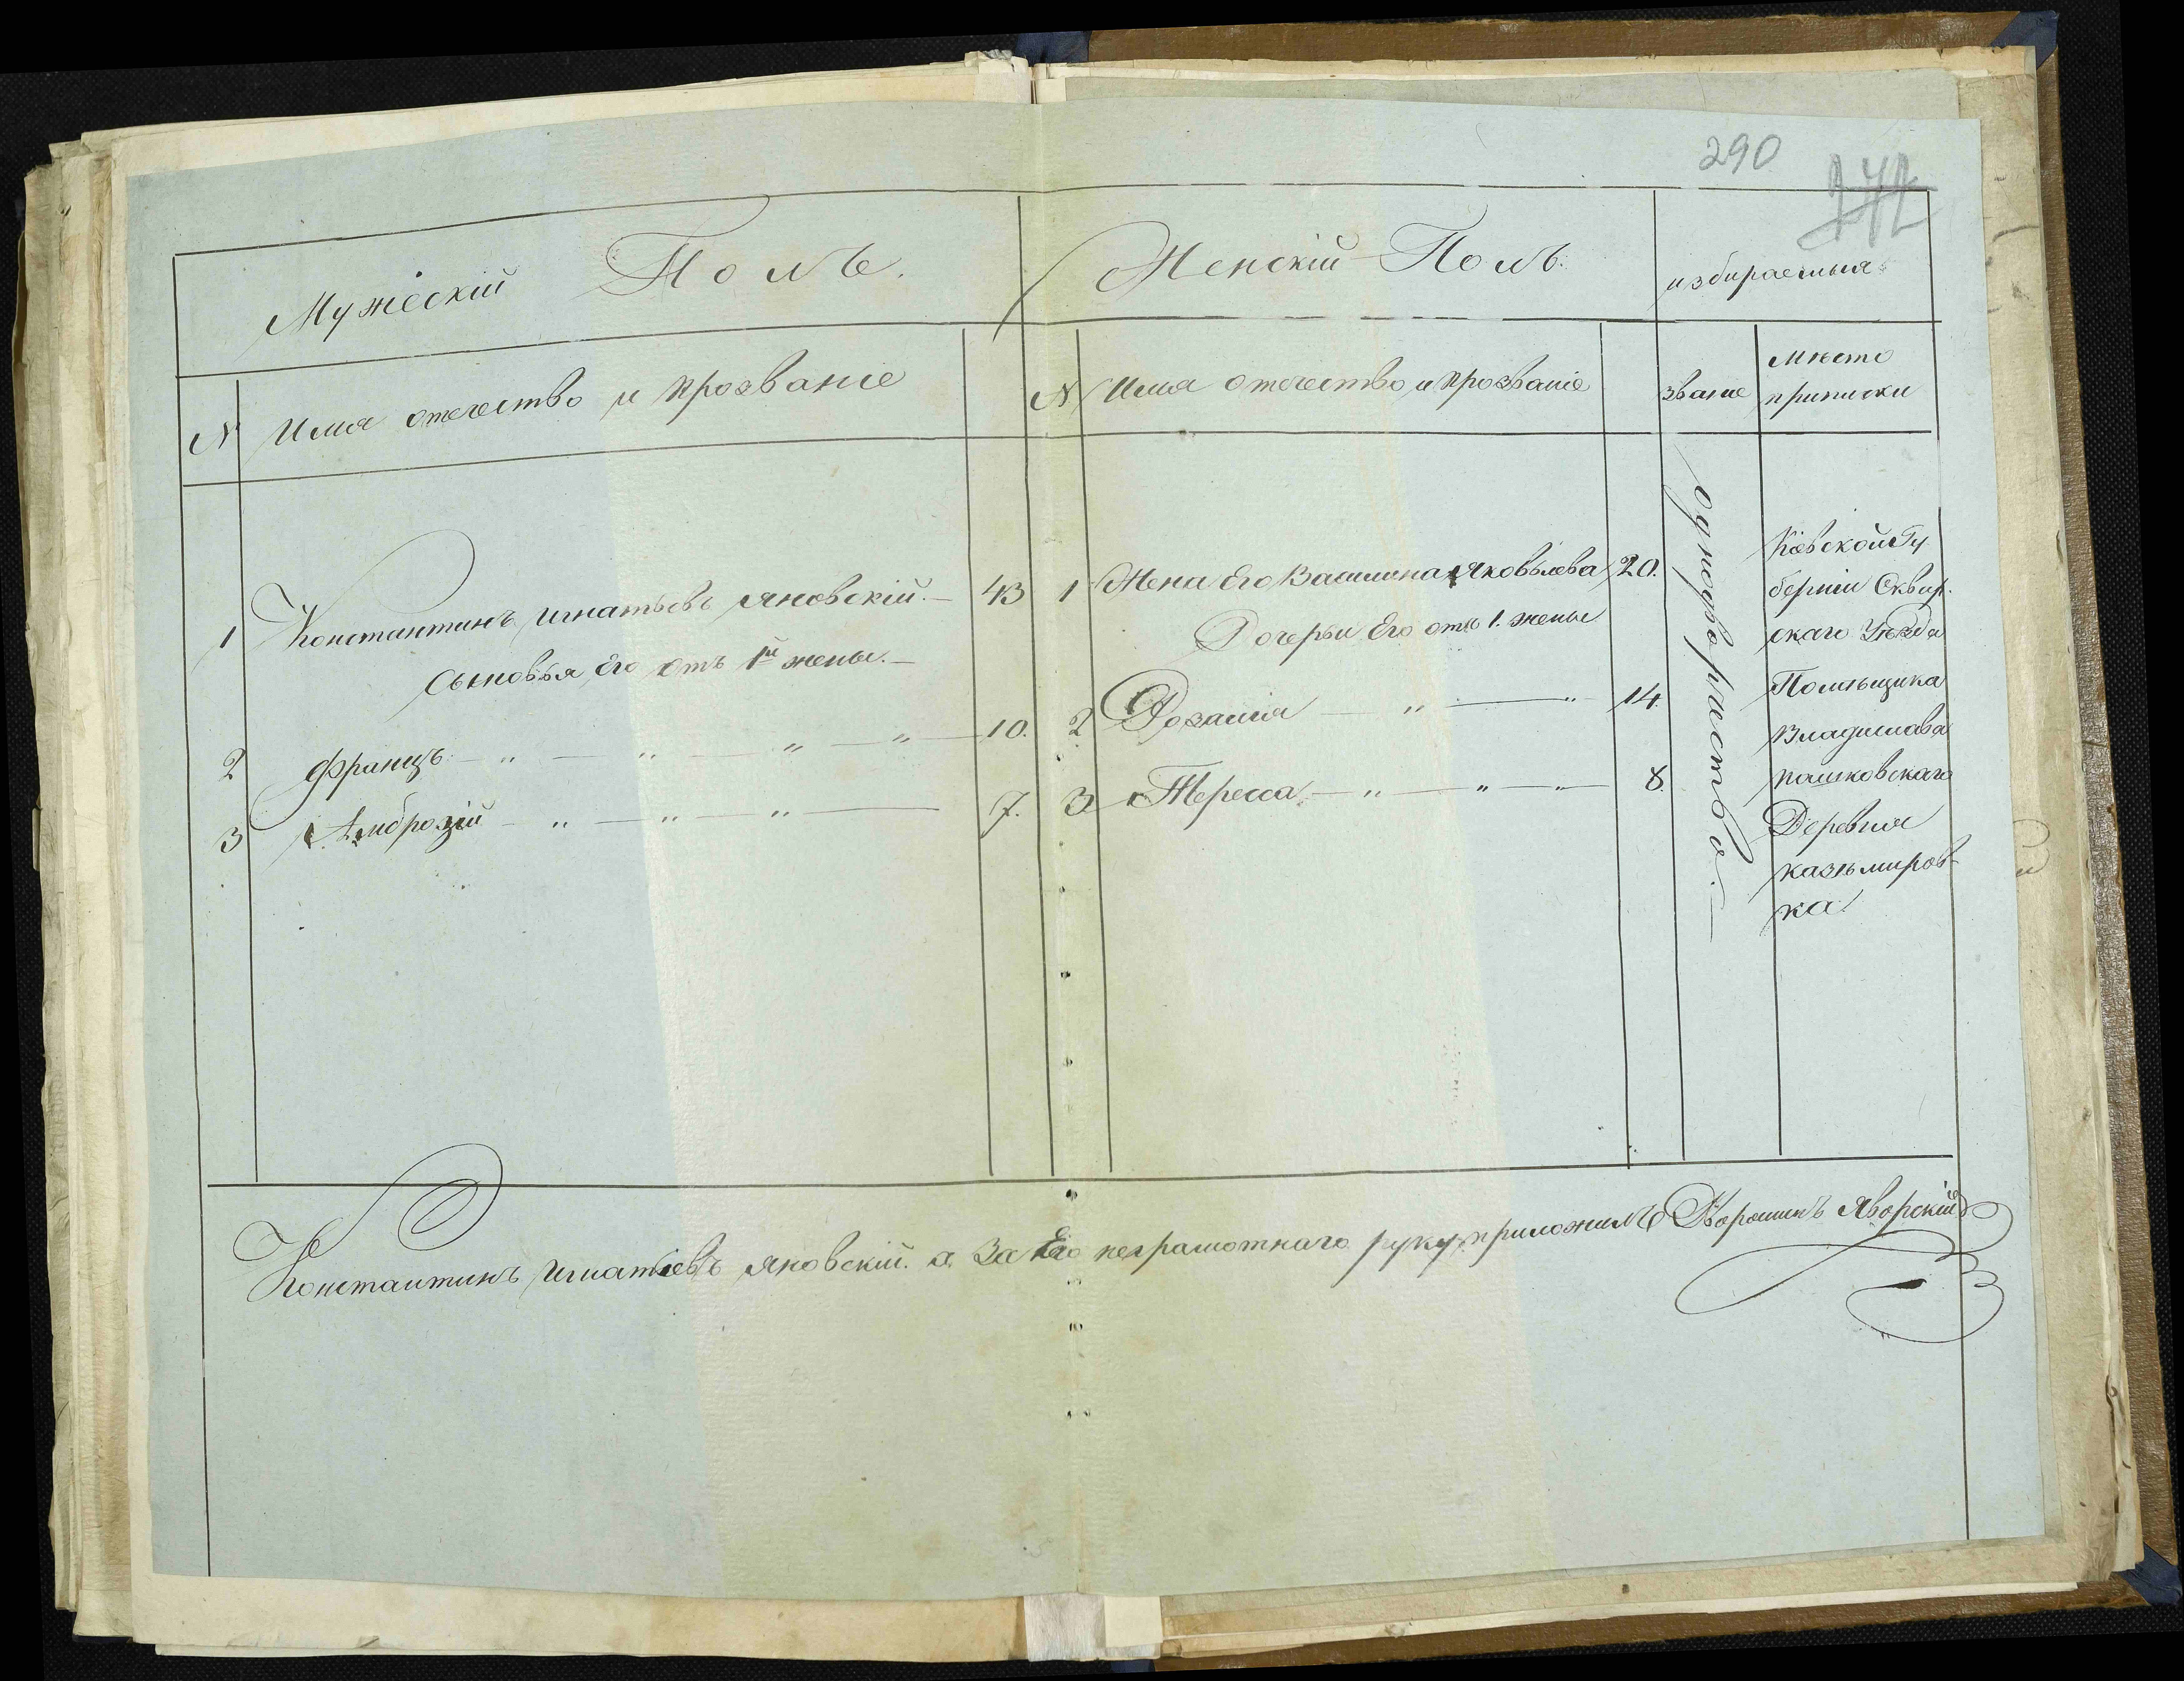 290
272
Мужескій Полъ.
Женскій Полъ.
избираемыя
N Имя отечество и прозваніе
N Имя отечество и прозваніе
званіе
Место
приписки
1 Константинъ Игнатьевъ Яновскій. — 43
Сыновья Его отъ 1й жены. —
2 Францъ — " — " — " — " — 10.
3 Амброзій — " — " — " — 7.
1 Жена Его Яковлева 20.
Дочери Его отъ 1. жены
2 Розалия — " — " 14.
3 Тереса — " — " — " — 8.
однодворчество. —
Кіевской Гу
берніи Сквир.
скаго Уезда
Помещика
Владислава
Пашковскаго
Деревня
Казьмиров-
ка
Константинъ Игнатьевъ Яновскій. а За Его неграмотнаго руку приложилъ Яворскій